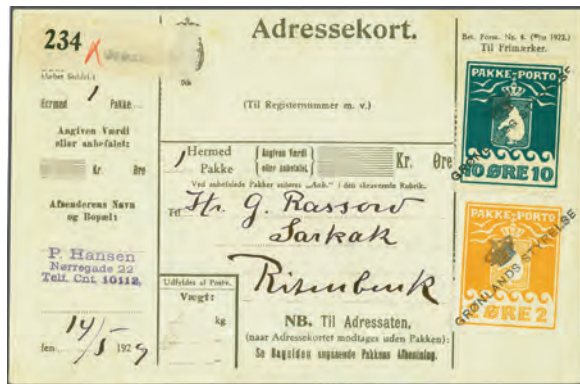 234
Hermed 1 Pakke
Angiven Værdi
eller anbefalet:
Kr. Øre
Afsenderens Navn
og Bopæl:
P. Hansen
Nørregade 22
Telf. Cnt. 10112.
14/5
den 1929
Adressekort.
(Til Registernummer m. v.)
1 Hermed
Pakke
Angiven Værdi
eller anbefalet:
Kr. Øre
Ved anbefalede Pakker anføres „Anb." i den skraverede Rubrik.
Til Hr. G. Rassow
Sarkak
Ritenbenk
Udfyldes af Postv.
Vægt:
kg
NB. Til Adressaten,
(naar Adressekortet modtages uden Pakken):
Se Bagsiden angaaende Pakkens Afhentning.
Bet. Form. Nr. 4. 1922.)
Til Frimærker.
PAKKE-PORTO
10 ØRE 10
PAKKE-PORTO
2 ØRE 2
GRØNLANDS STYRELSE